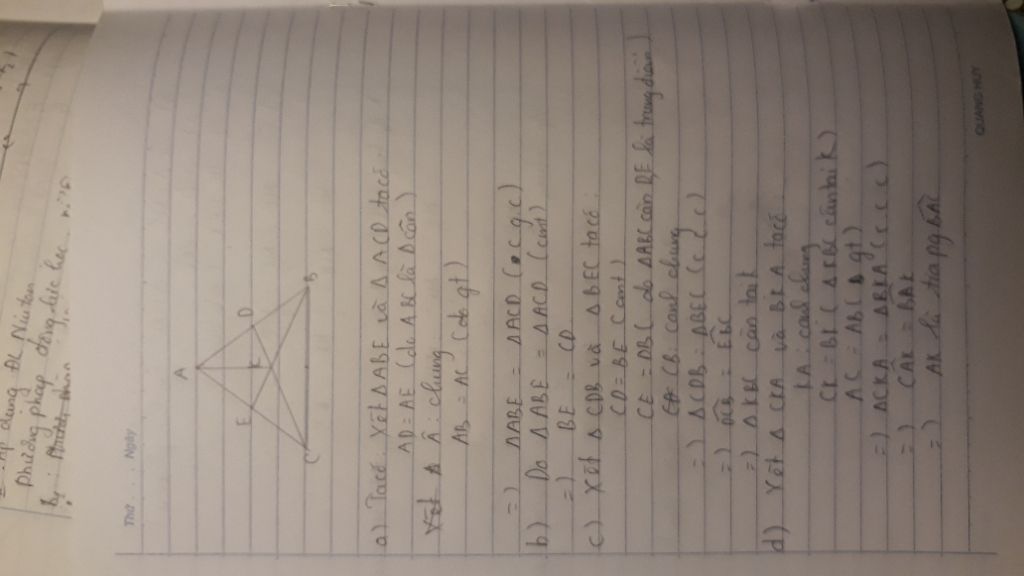 phương pháp động lực học
Thứ . . . Ngày
A
E
D
K
C
B
a) Ta có. Xét ΔABE và ΔACD ta có.
AD = AE (do ABC là Δ cân)
Â: chung
AB = AC (do gt)
=) ΔABE = ΔACD (c g c)
b) Do ΔABE = ΔACD (cmt)
=) BE = CD
c) Xét Δ CDB và ΔBEC ta có:
CD = BE (cmt)
CE = DB (do ΔABC cân D,E là trung điểm)
CB: cạnh chung
=) ΔCDB = ΔBEC (c c c)
=) DCB = EBC
=) Δ KBC cân tại K
d) Xét Δ CKA và BKA ta có.
KA: cạnh chung
CK = BK (ΔKBC cân tại K)
AC = AB (gt)
=) ΔCKA = ΔBKA (c c c)
=) CAK = BAK
=) AK là tia pg BAC
QUANG HUY